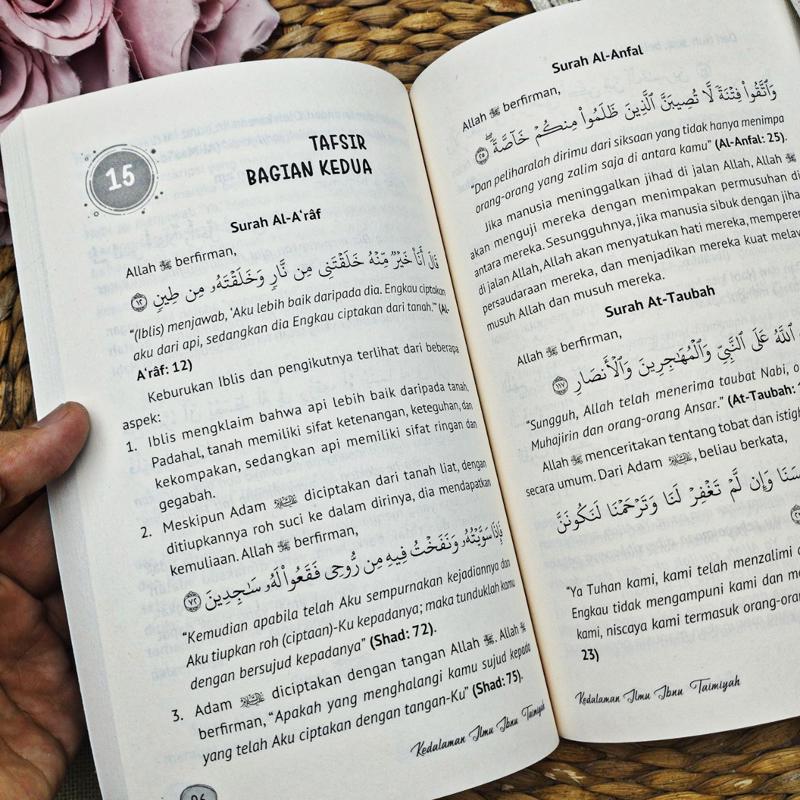 15
TAFSIR
BAGIAN KEDUA
Surah Al-A'râf
Allah ﷻ berfirman,
قَالَ أَنَا۠ خَيْرٌ مِّنْهُ خَلَقْتَنِى مِن نَّارٍ وَخَلَقْتَهُۥ مِن طِينٍ ١٢
"(Iblis) menjawab, 'Aku lebih baik daripada dia. Engkau ciptakan
aku dari api, sedangkan dia Engkau ciptakan dari tanah.'" (Al-
A'râf: 12)
Keburukan Iblis dan pengikutnya terlihat dari beberapa
aspek:
1. Iblis mengklaim bahwa api lebih baik daripada tanah.
Padahal, tanah memiliki sifat ketenangan, keteguhan, dan
kekompakan, sedangkan api memiliki sifat ringan dan
gegabah.
2. Meskipun Adam diciptakan dari tanah liat, dengan
ditiupkannya roh suci ke dalam dirinya, dia mendapatkan
kemuliaan. Allah ﷻ berfirman,
فَإِذَا سَوَّيْتُهُۥ وَنَفَخْتُ فِيهِ مِن رُّوحِى فَقَعُوا۟ لَهُۥ سَـٰجِدِينَ ٧٢
"Kemudian apabila telah Aku sempurnakan kejadiannya dan
Aku tiupkan roh (ciptaan)-Ku kepadanya; maka tunduklah kamu
dengan bersujud kepadanya" (Shad: 72).
3. Adam diciptakan dengan tangan Allah ﷻ. Allah ﷻ
berfirman, "Apakah yang menghalangi kamu sujud kepada
yang telah Aku ciptakan dengan tangan-Ku" (Shad: 75).
Kedalaman Ilmu Ibnu Taimiyah
Surah Al-Anfal
Allah ﷻ berfirman,
وَٱتَّقُوا۟ فِتْنَةً لَّا تُصِيبَنَّ ٱلَّذِينَ ظَلَمُوا۟ مِنكُمْ خَآصَّةً ۖ ٢٥
"Dan peliharalah dirimu dari siksaan yang tidak hanya menimpa
orang-orang yang zalim saja di antara kamu" (Al-Anfal: 25).
Jika manusia meninggalkan jihad di jalan Allah, Allah ﷻ
akan menguji mereka dengan menimpakan permusuhan di
antara mereka. Sesungguhnya, jika manusia sibuk dengan
di jalan Allah, Allah akan menyatukan hati mereka,
persaudaraan mereka, dan menjadikan mereka kuat
musuh Allah dan musuh mereka.
Surah At-Taubah
Allah ﷻ berfirman,
ٱللَّهُ عَلَى ٱلنَّبِىِّ وَٱلْمُهَـٰجِرِينَ وَٱلْأَنصَارِ ١١٧
"Sungguh, Allah telah menerima taubat Nabi,
Muhajirin dan orang-orang Ansar." (At-Taubah:
Allah ﷻ menceritakan tentang tobat dan
secara umum. Dari Adam, beliau berkata,
وَإِن لَّمْ تَغْفِرْ لَنَا وَتَرْحَمْنَا لَنَكُونَنَّ
"Ya Tuhan kami, kami telah menzalimi
Engkau tidak mengampuni kami dan
kami, niscaya kami termasuk
23)
Kedalaman Ilmu Ibnu Taimiyah